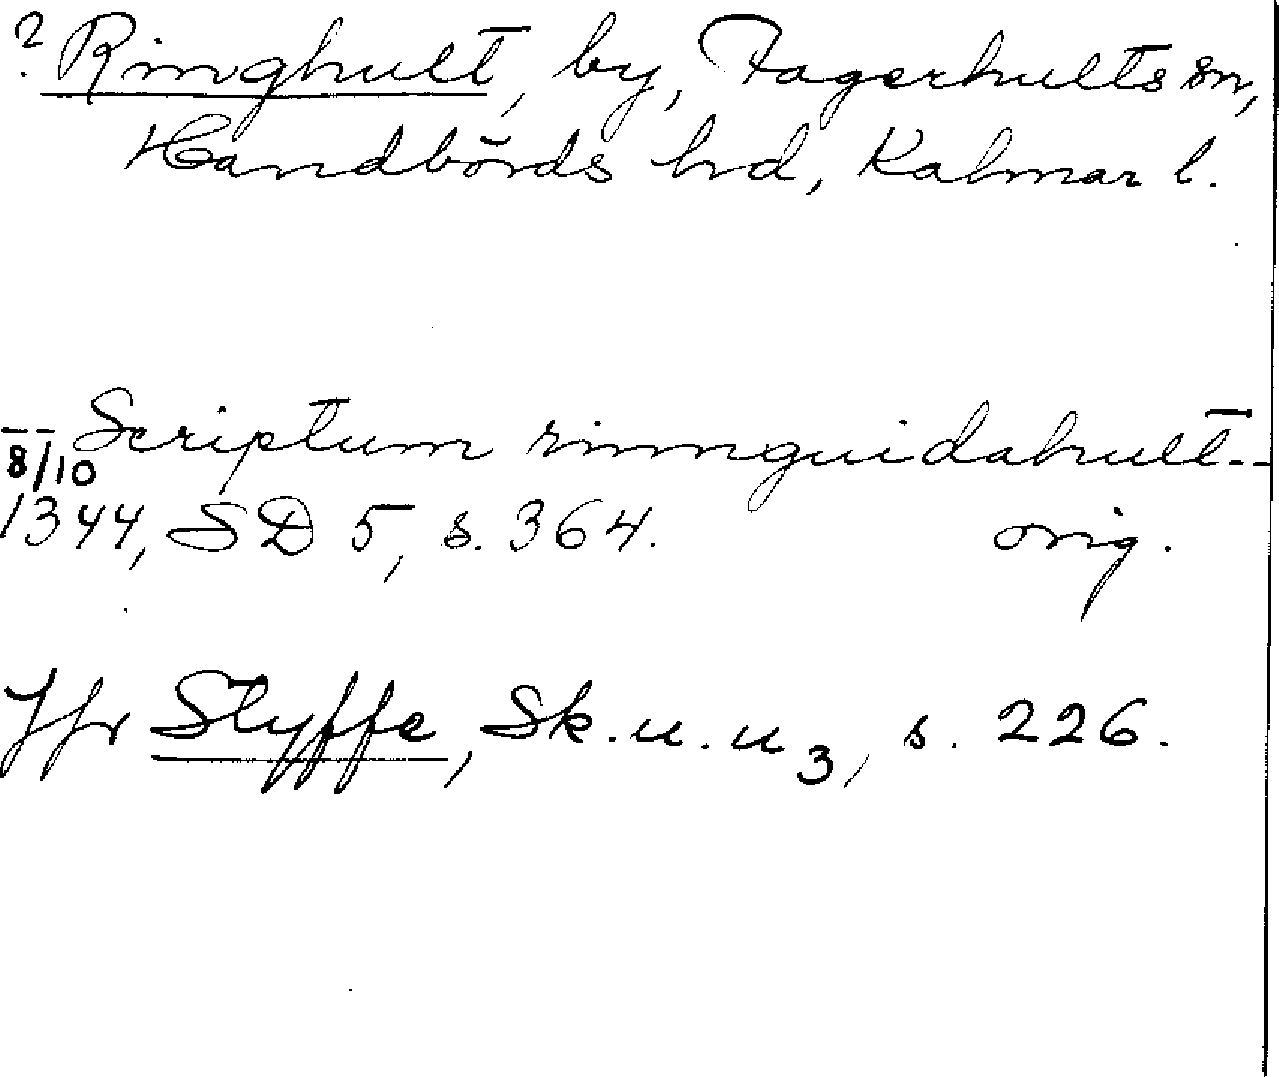 ? Ringhult, by, Fagerhults sn,
Handbörds hd, Kalmar l.
-- Scriptum rinnguidahult --
8/10
1344, SD 5, s. 364. orig.
Jfr Styffe, Sk. u. u 3, s. 226.